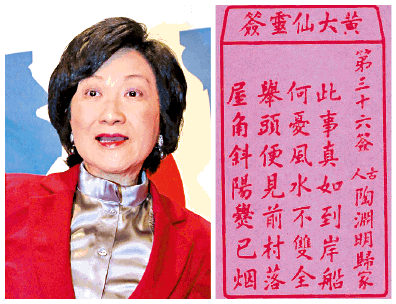 黃大仙靈簽
第三十六簽 古人 陶淵明歸家
此事真如到岸船
何憂風水不雙全
舉頭便見前村落
屋角斜陽爨已烟